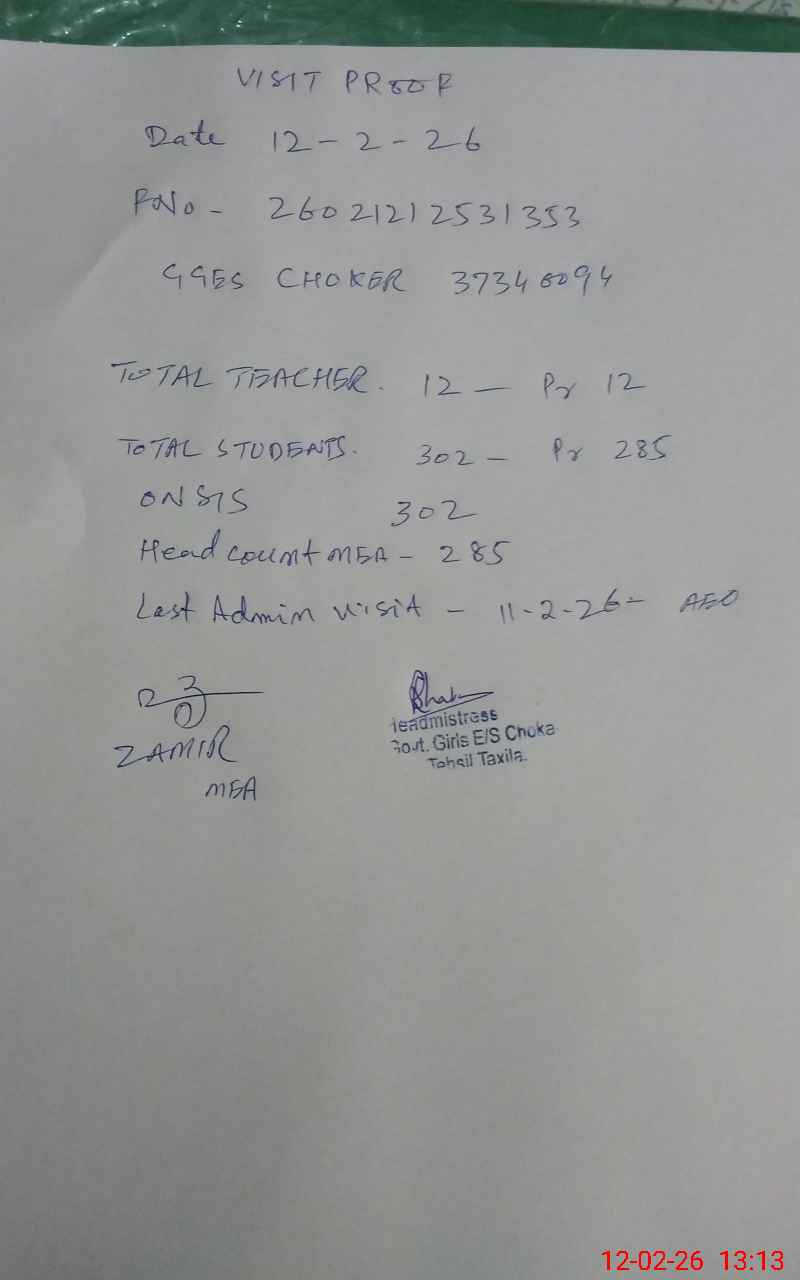 VISIT PROOF
Date 12-2-26
RNo - 26021212531353
GGES CHOKER 37340094
TOTAL TEACHER. 12 — Pr 12
TOTAL STUDENTS. 302 - Pr 285
ON SIS 302
Head count MEA - 285
Last Admin Visit - 11-2-26 - AEO
ZAMIR
MEA
Headmistress
Govt. Girls E/S Choka
Tehsil Taxila.
12-02-26 13:13